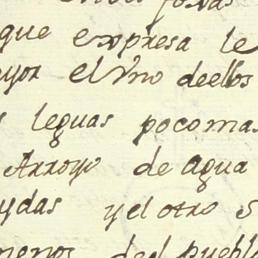 que expresa le
yor el Vno deellos
s leguas pocomas
Arroyo de agua
ydas y el otro s
menos del Pueblo